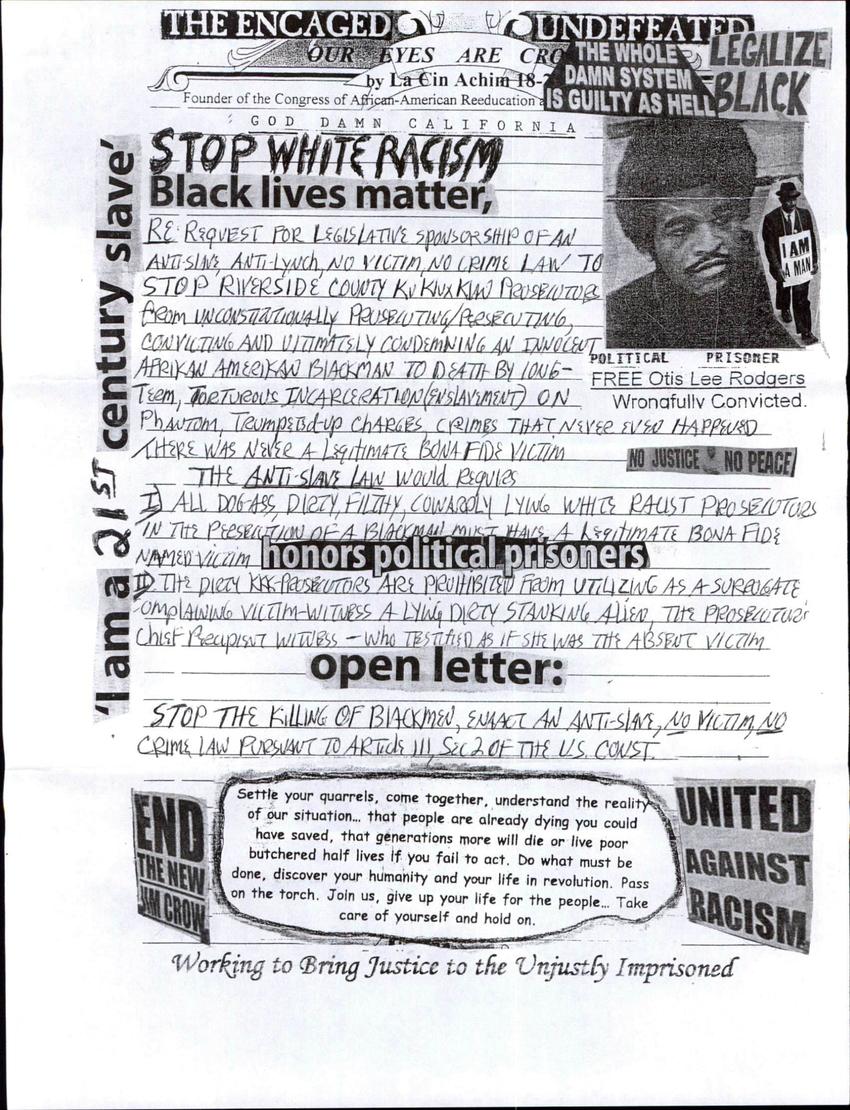 THE ENCAGED UNDEFEATED
OUR EYES ARE CRO
by La Cin Achim 18-
Founder of the Congress of African-American Reeducation
THE WHOLE
DAMN SYSTEM
IS GUILTY AS HELL
LEGALIZE
BLACK
GOD DAMN CALIFORNIA
STOP WHITE RACISM
Black lives matter,
'I am a 21ST century slave'
RE: REQUEST FOR LEGISLATIVE SPONSORSHIP OF AN
ANTI-SLAVE, ANTI-LYNCH, NO VICTIM, NO CRIME LAW TO
STOP RIVERSIDE COUNTY KU KLUX KLAN PROSECUTORS
FROM UNCONSTITUTIONALLY PROSECUTING/PERSECUTING,
CONVICTING AND ULTIMATELY CONDEMNING AN INNOCENT
AFRIKAN AMERIKAN BLACKMAN TO DEATH BY LONG-
TERM, TORTUROUS INCARCERATION (ENSLAVEMENT) ON
PHANTOM, TRUMPED-UP CHARGES, CRIMES THAT NEVER EVEN HAPPENED
THERE WAS NEVER A LEGITIMATE BONA FIDE VICTIM
I AM
A MAN
POLITICAL PRISONER
FREE Otis Lee Rodgers
Wrongfully Convicted.
NO JUSTICE NO PEACE
THE ANTI-SLAVE LAW WOULD REQUIRE
I) ALL DOG-ASS, DIRTY, FILTHY, COWARDLY LYING WHITE RACIST PROSECUTORS
IN THE PERSECUTION OF A BLACKMAN MUST HAVE A LEGITIMATE BONA FIDE
NAMED VICTIM honors political prisoners
II) THE DIRTY KKK-PROSECUTORS ARE PROHIBITED FROM UTILIZING AS A SURROGATE
COMPLAINING VICTIM-WITNESS A LYING DIRTY STANKING ALIEN, THE PROSECUTOR'S
CHIEF WITNESS - WHO TESTIFIED AS IF SHE WAS THE ABSENT VICTIM
open letter:
STOP THE KILLING OF BLACKMEN, ENAACT AN ANTI-SLAVE, NO VICTIM, NO
CRIME LAW PURSUANT TO ARTICLE III, SEC 2 OF THE U.S. CONST.
END
THE NEW
JIM CROW
Settle your quarrels, come together, understand the reality
of our situation... that people are already dying you could
have saved, that generations more will die or live poor
butchered half lives if you fail to act. Do what must be
done, discover your humanity and your life in revolution. Pass
on the torch. Join us, give up your life for the people... Take
care of yourself and hold on.
UNITED
AGAINST
RACISM
Working to Bring Justice to the Unjustly Imprisoned